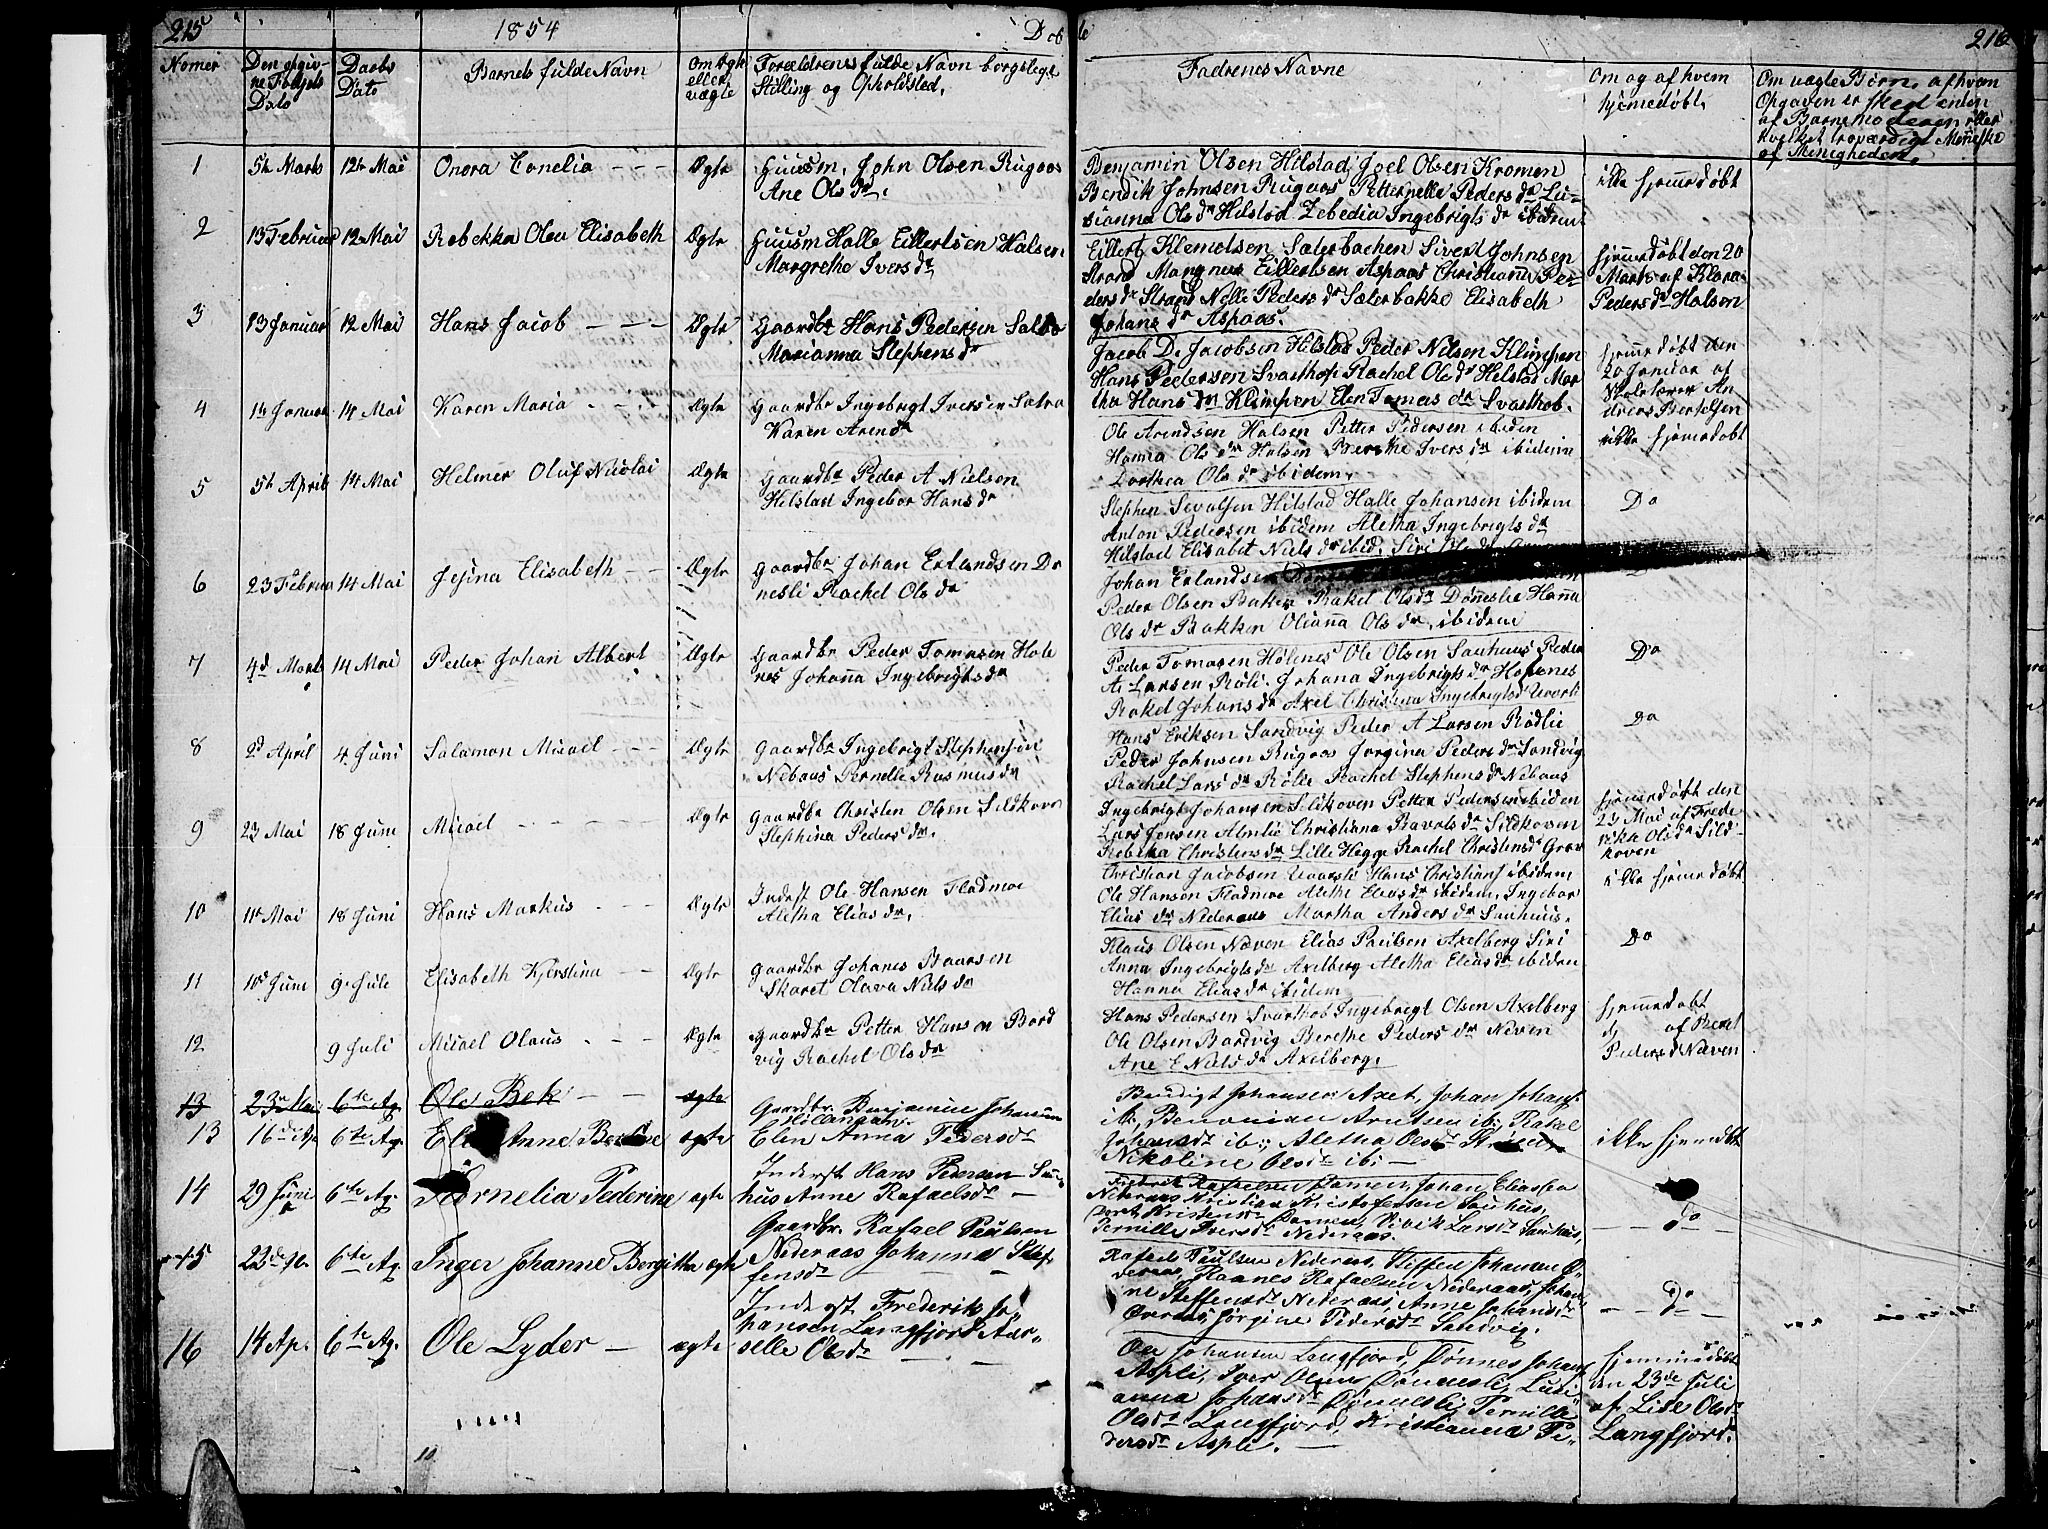 215
1854
Dobte
216
Nomer
Den opgivne Fødsels Dato
Daabs Dato
Barnets fulde Navn
Om Ægte eller uægte
Forældrenes fulde Navn borgslege Stilling og Opholdsted.
Fadrenes Navne
Om og af hvem hjemedøbt.
Om uægte Børn, af hvem Opgaven er sked enten af Barnemoderen eller hvilket troværdigt Meneske af Menigheden.
1 5te Marts 12te Mai Onora Conelia Ægte
Huusm. John Olsen Rugaas
Ane Olsdr.
Benjamin Olsen Hilstad Joel Olsen Kromen
Bendik Johnsen Rugaas Petternelle Pedersdr Lu-
sianna Olsdr Hilstad Zebedia Ingebrigtsdr ibidem
ikke hjemedøbt
2 13 Februar 12 Mai Rebekka Olea Elisabeth Ægte
Huusm Halle Eillertsen Halsen
Margrethe Iversdr
Eillert Klemetsen Sæterbachen Sivert Johnsen
Strand Mangnus Eillertsen Aspaas Christianna Pe-
dersdr Strand Nelle Pedersdr Sæterbakke Elisabeth
Johansdr Aspaas.
hjemedøbt den 20
Marts af Klara
Pedersdr Halsen
3 13 Januar 12 Mai Hans Jacob Ægte
Gaardbr Hans Pedersen
Marianna Stephensdr
Jacob D. Jacobsen Hilstad Peder Nilsen Klimpen
Hans Pedersen Svarthop Rachel Olsdr Hilstad Mar
tha Hansdr Klimpen Elen Tomasdr Svarthob.
hjemedøbt den
20 Januar af
Skolelærer An
dreas Bertelsen
4 Januar 14 Mai Karen Maria Ægte
Gaardbr Ingebrigt Iversen
Karen Arendr
Ole Arendsen Halsen Petter Pedersen ibiden
Hanna Olsdr Halsen Berethe Iversdr ibidem
Dorthea Olsdr ibidem.
ikke hjemedøbt
5 5te April 14 Mai Helmer Oluf Nicolai Ægte
Gaardbr Peder A Nielsen
Hilstad Ingebor Hansdr
Stephen Sevalsen Hilstad Halle Johansen ibidem
Anton Pedersen ibidem Aletha Ingebrigtsdr
Hilstad Elisabet Nielsdr ibid. Siri
Do
6 23 Februar 14 Mai Jesina Elisabeth Ægte
Gaardbr Johan Erlandsen Dø
nesli Rachel Olsdr
Johan Erlandsen
Peder Olsen Baken Rakel Olsdr Dønneslie Hanna
Olsdr Bakken Olianna Olsdr ibidem
7 4d Mart 14 Mai Peder Johan Albert Ægte
Gaardbr Peder Tomasen Høle
nes Johanna Ingebrigtsdr
Peder Tomasen Hølenes Ole Olsen Sauhuus Peder
A. Larsen Røli. Johana Ingebrigtsdr Holenes
Rakel Johansdr Axel Christina Ingebrigtsd
Do
8 2d April 4 Juni Salamon Micael Ægte
Gaardbr Ingebrigt Stephensen
Nebaus Pernelle Rasmusdr
Hans Eriksen Sandvig Peder A Larsen Rødlie
Peder Johnsen Rugaas Jørgina Pedersdr Sandvig
Rachel Larsdr Rølie Rachel Stephensdr Nebaus
Do
9 23 Mai 18 Juni Micael Ægte
Gaardbr Christen Olsen Sildkoven
Stephina Pedersdr.
Ingebrigt Johansen Sildkoven Petter Pedersen ibiden
Lars Jensen Almlie Christiana Sildkoven
Rebeka Christensdr Lille Hegge Rachel Christensdr
hjemedøbt den
29 Mai af Frede
rikka Olsdr Sild-
koven
10 Mai 18 Juni Hans Markus Ægte
Inderst Ole Hansen Fladmoe
Aletha Eliasdr.
Christian Jacobsen Hans Christians ibidem
Ole Hansen Fladmoe Aletha Eliasdr ibidem, Ingebor
Eliasdr Nideraas Martha Andersdr Sauhuus.
ikke hjemedøbt
11 Juni 9 Jule Elisabeth Kjerstina Ægte
Gaardbr Johanes Baarsen
Skaret Olava Nielsdr
Klaus Olsen Næven Elias Paulsen Axelberg Siri
Anna Ingebrigtsdr Axelberg Aletha Eliasdr ibiden
Hanna Eliasdr ibidem
Do
12 9 Juli Micael Olaus Ægte
Gaardbr Petter Hansen Bord
vig Rachel Olsdr
Hans Pedersen Svarthob Ingebrigt Olsen Axelberg
Ole Olsen Bordvig Berethe Pedersdr Næven
Ane E Nielsdr Axelberg.
hjemedøbt
af Beret
Pedersd Næven
13 23 Mai 6te Ag. Ole Bek ægte
13 16de Ap 6te Ag. Anne ægte
Gaardbr. Benjamin Johansen
Elen Anna Pedersdr
Bendigt Johansen Axet, Johan Johans.
ib., Benonias Arntsen ib; Rakel
Johansdr ib;, Aletha Olsdr
Nikoline Olsdr ib;
ikke hjemdøbt
14 29 Juni 6te Ag. Kornelia Pederine ægte
Inderst Hans Pedersen Sau-
hus Anne Rafaelsdr
Fredrik Johan Eliassen
Nideraas Kristian Kristofersen Sauhus,
Larsdr Sauhus,
Pernille Iversdr Nideraas.
Do
15 23de 6te Ag. Inger Johanne Bergitha ægte
Gaardbr. Rafael Paulsen
Nideraas Johanna Stef-
fensdr
Rafael Paulsen Nideraas, Steffen Johansen Ø-
veraas, Hannes Rafaelsen Nideraas, Johan-
ne Steffensdr Nideraas, Anne Johansdr
Øveraas, Jørgine Pedersdr Sandvig.
Do
16 14 Ap. 6te Ag. Ole Lyder ægte
Inderst Frederik Jo-
hansen Langfjord
selle Olsdr
Ole Johansen Langfjord, Dønnes Johans.
Aspli, Iver Olsen Dønnesli, Lusi-
anna Johansdr Dønnesli, Pernille
Olsdr Langfjord, Kristianna Pe-
dersdr Aspli.
hjemmedøbt
den 23de Juli
af Lise Olsdr
Langfjord.
10